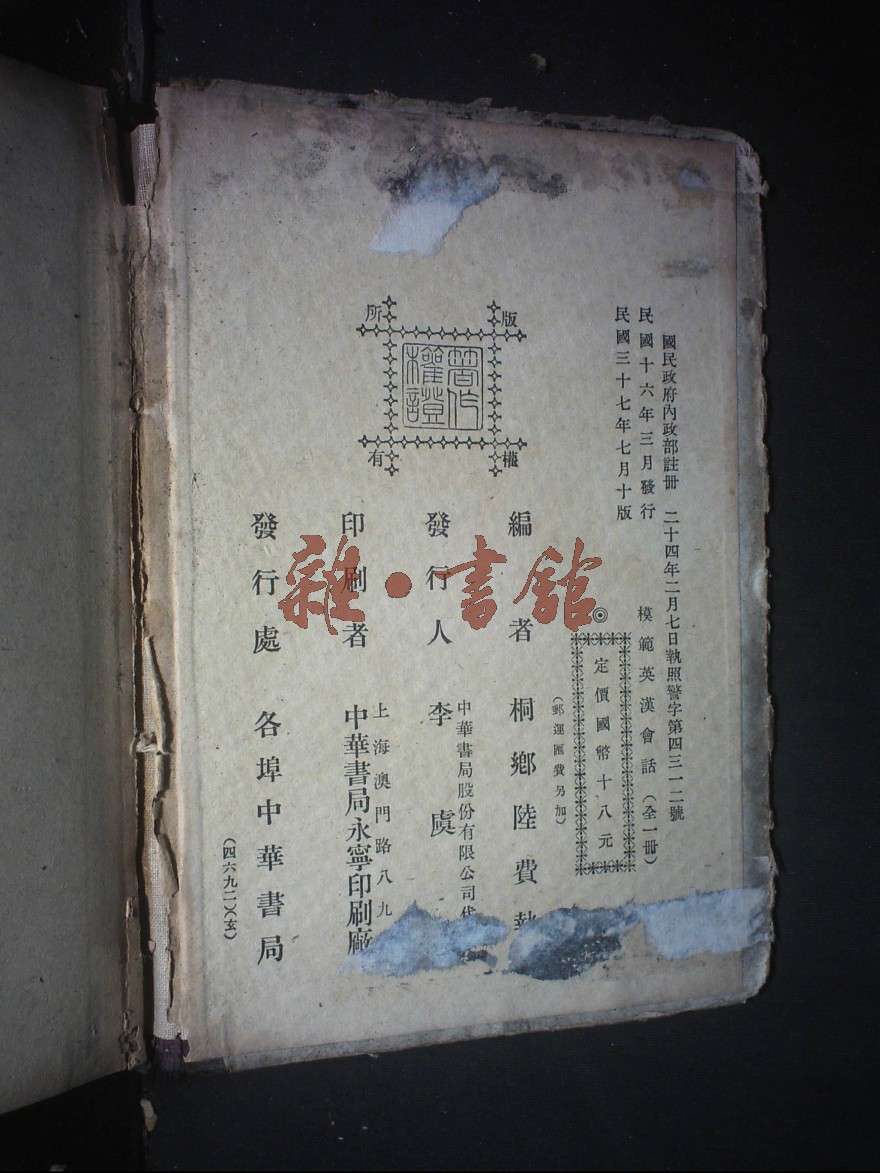 國民政府內政部註冊 二十四年二月七日執照警字第四三一二號
民國十六年三月發行
民國三十七年七月十版
模範英漢會話(全一冊)
◎定價國幣十八元
(郵運匯費另加)
版權所有
著作權證
編者 桐鄉陸費執
發行人 李虞
中華書局股份有限公司代
印刷者 中華書局永寧印刷廠
上海澳門路八九
發行處 各埠中華書局
(四六九二)(玄)
雜·書館